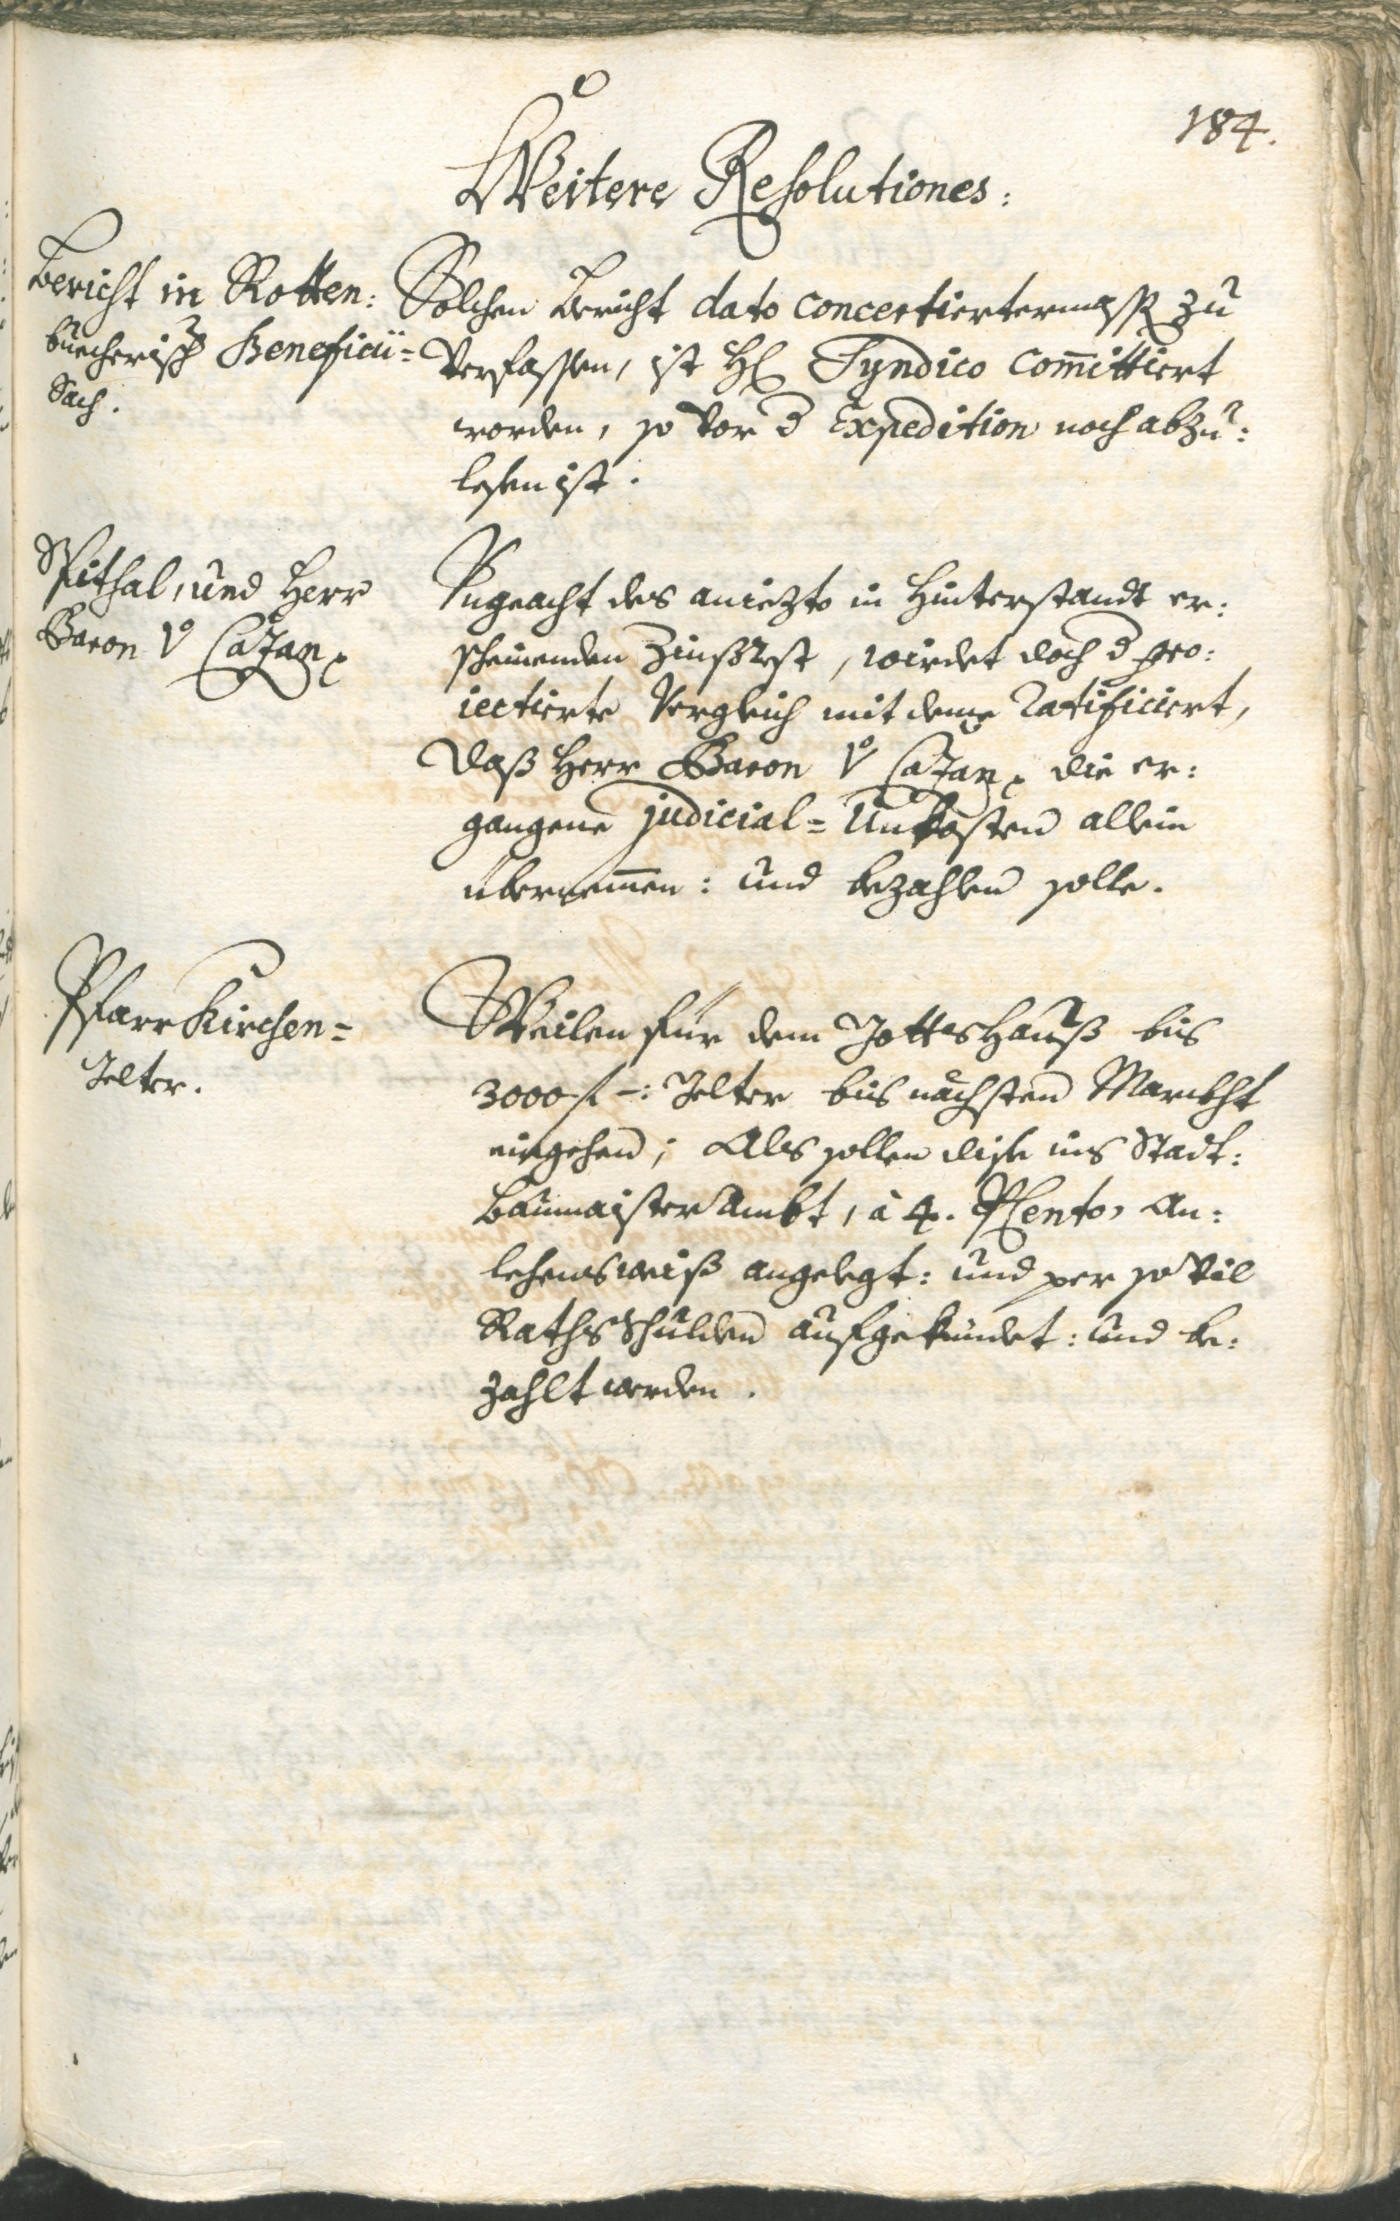 184.
Weitere Resolutiones:
Bericht in Rotten:
buecherisch Beneficii=
Sach.
Solchen Bericht dato concertiertermassen zu
verfassen, ist H: Syndico com̄ittiert
worden, so vor d Expedition noch abzu:
lesen ist.
Spithal, und Herr
Baron v Cajan
Ungeacht des aniezto in Hinterstandt er:
scheinenden Zinßrest, wirdet doch d pro:
iectierte Vergleich mit deme ratificiert,
daß Herr Baron v Cajan die er:
gangene judicial=Unkosten allein
übernem̄en: und bezahlen solle.
PfarrKirchen=
Gelter.
Weilen für dem GottsHauß bis
3000 f -: Gelter bis nächsten Marckht
eingehen; Als sollen dise ins Stadt:
BaumaisterAmbt, à 4. P Cento, An:
lehensweiß angelegt: und per so vil
RathsSchulden aufgekündet: und be:
zahlt werden.